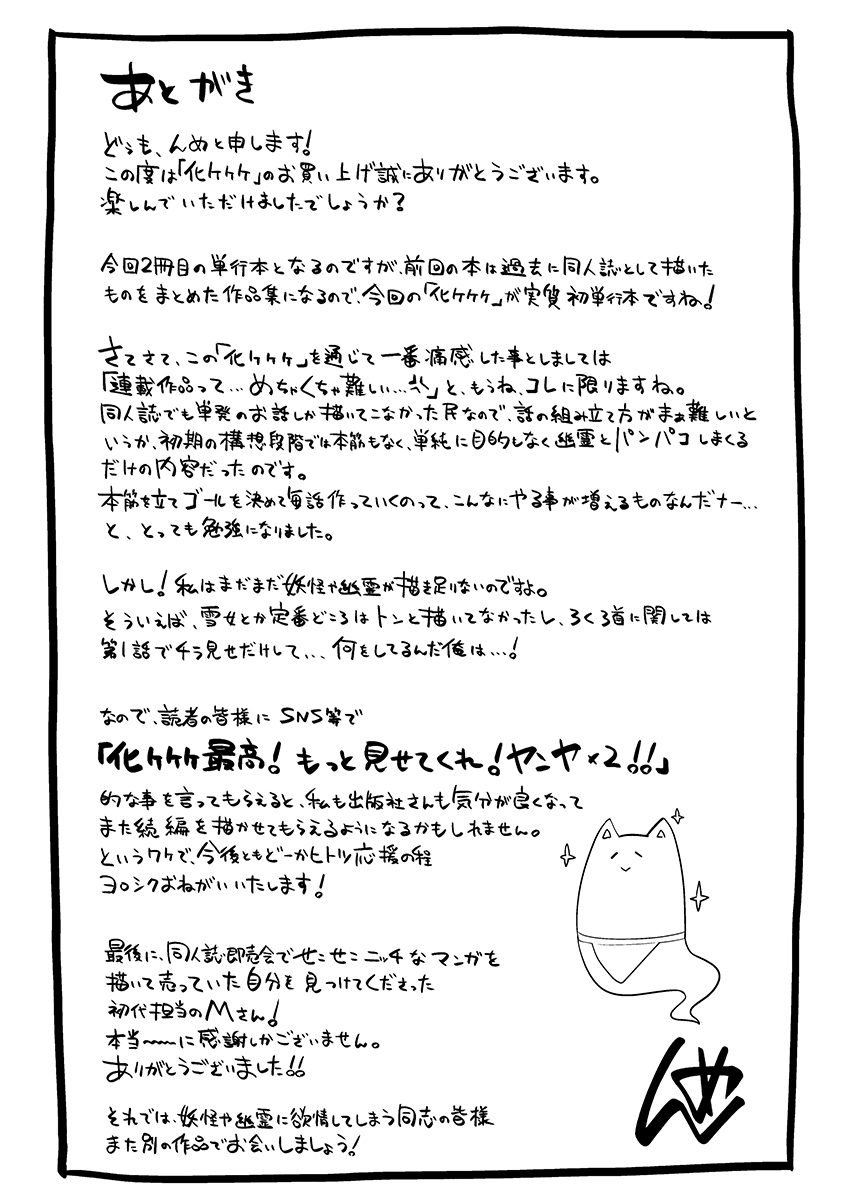 あとがき
どうも、んめと申します!
この度は「化ケケケ」のお買い上げ誠にありがとうございます。
楽しんでいただけましたでしょうか?
今回2冊目の単行本となるのですが、前回の本は過去に同人誌として描いた
ものをまとめた作品集になるので、今回の「化ケケケ」が実質初単行本ですね!
さてさて、この「化ケケケ」を通じて一番痛感した事としましては
「連載作品って…めちゃくちゃ難しい…」と、もうね、コレに限りますね。
同人誌でも単発のお話しか描いてこなかった民なので、話の組み立て方がまぁ難しいと
いうか、初期の構想段階では本筋もなく、単純に目的もなく幽霊とパンパコしまくる
だけの内容だったのです。
本筋を立てゴールを決めて毎話作っていくのって、こんなにやる事が増えるものなんだナー…
と、とっても勉強になりました。
しかし!私はまだまだ妖怪や幽霊が描き足りないのですよ。
そういえば、雪女とか定番どころはトンと描いてなかったし、ろくろ首に関しては
第1話でチラ見せだけして...何をしてるんだ俺は...!
なので、読者の皆様にSNS等で
「化ケケケ最高!もっと見せてくれ!ヤンヤ×2!!」
的な事を言ってもらえると、私も出版社さんも気分が良くなって
また続編を描かせてもらえるようになるかもしれません。
というワケで、今後ともどーかヒトツ応援の程
ヨロシクおねがいいたします!
最後に、同人誌即売会でせこせこニッチなマンガを
描いて売っていた自分を見つけてくださった
初代担当のMさん!
本当〜〜に感謝しかございません。
ありがとうございました!!
それでは、妖怪や幽霊に欲情してしまう同志の皆様
また別の作品でお会いしましょう!
んめ